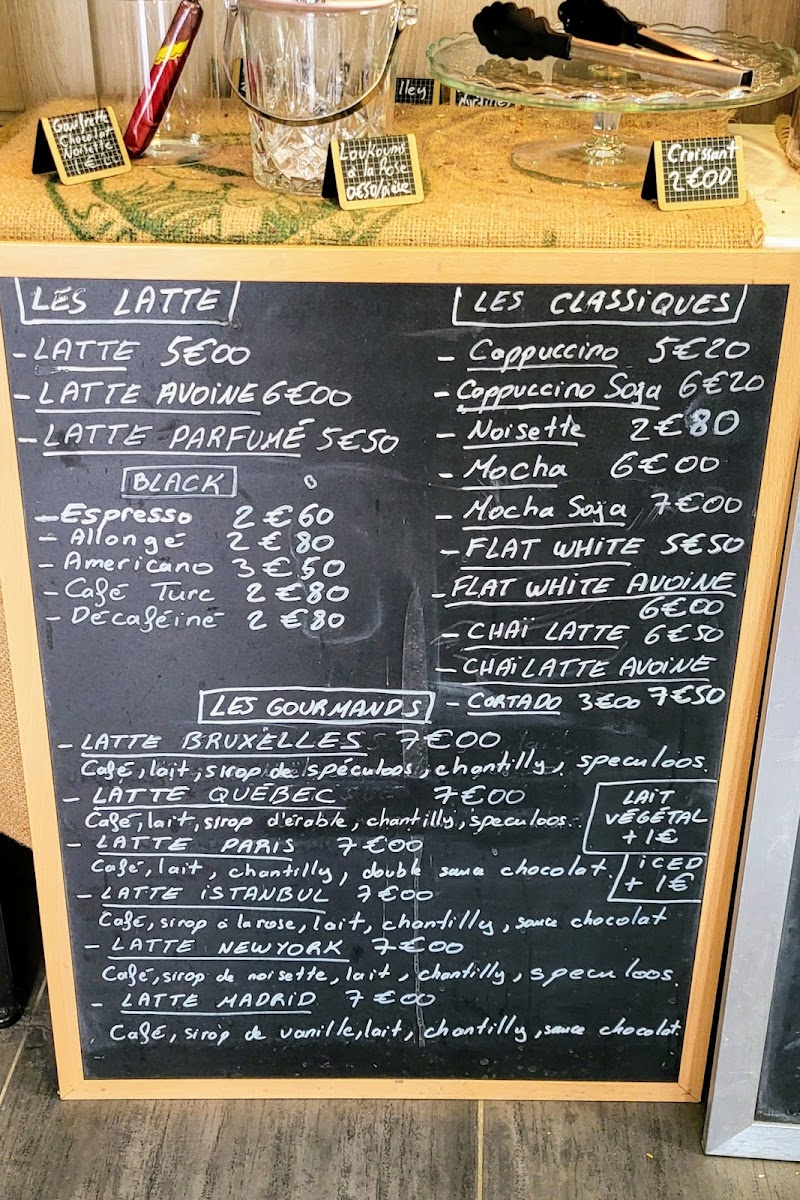 Gaufrette
Chocolat
Noisette
lley
Loukoums
à la Rose
0€50/pièce
Croissant
2€00
LES LATTE
- LATTE 5€00
- LATTE AVOINE 6€00
- LATTE PARFUMÉ 5€50
BLACK
- Espresso 2€60
- Allongé 2€80
- Americano 3€50
- Café Turc 2€80
- Décaféiné 2€80
LES CLASSIQUES
- Cappuccino 5€20
- Cappuccino Soja 6€20
- Noisette 2€80
- Mocha 6€00
- Mocha Soja 7€00
- FLAT WHITE 5€50
- FLAT WHITE AVOINE
6€00
- CHAÏ LATTE 6€50
- CHAÏ LATTE AVOINE
7€50
- CORTADO 3€00
LES GOURMANDS
- LATTE BRUXELLES 7€00
Café, lait, sirop de spéculoos, chantilly, speculoos.
- LATTE QUÉBEC 7€00
Café, lait, sirop d'érable, chantilly, speculoos.
- LATTE PARIS 7€00
Café, lait, chantilly, double sauce chocolat.
- LATTE iSTANBUL 7€00
Café, sirop à la rose, lait, chantilly, sauce chocolat
- LATTE NEWYORK 7€00
Café, sirop de noisette, lait, chantilly, speculoos.
- LATTE MADRID 7€00
Café, sirop de vanille, lait, chantilly, sauce chocolat.
LAIT
VÉGÉTAL
+ 1€
iCED
+ 1€